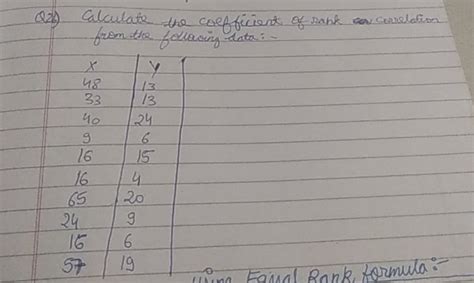 Q2) Calculate the coefficient of rank correlation
from the following data:-
X Y
48 13
33 13
40 24
9 6
16 15
16 4
65 20
24 9
16 6
57 19
using Equal Rank formula:-